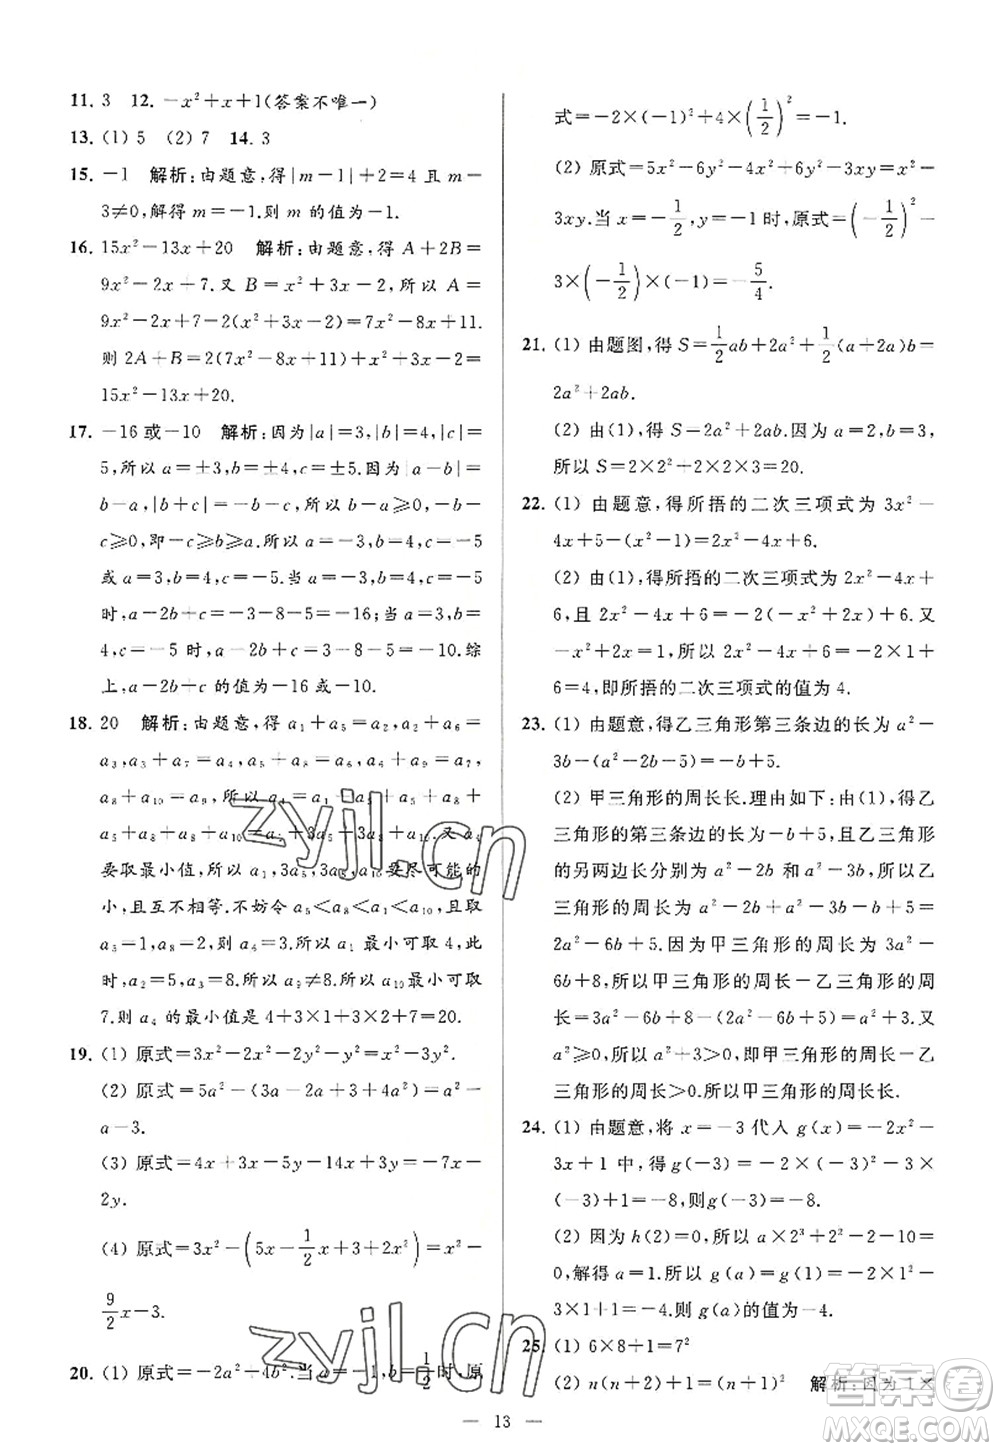 11. 3　12. －x²＋x＋1(答案不唯一)
13. (1) 5　(2) 7　14. 3
15. －1　解析:由题意,得|m－1|＋2＝4 且 m－
3≠0,解得 m＝－1.则 m 的值为－1.
16. 15x²－13x＋20　解析:由题意,得 A＋2B＝
9x²－2x＋7.又 B＝x²＋3x－2,所以 A＝
9x²－2x＋7－2(x²＋3x－2)＝7x²－8x＋11.
则 2A＋B＝2(7x²－8x＋11)＋x²＋3x－2＝
15x²－13x＋20.
17. －16或－10　解析:因为|a|＝3,|b|＝4,|c|＝
5,所以 a＝±3,b＝±4,c＝±5.因为|a－b|＝
b－a,|b＋c|＝－b－c,所以 b－a≥0,－b－
c≥0,即－c≥b≥a.所以 a＝－3,b＝4,c＝－5
或 a＝3,b＝4,c＝－5.当 a＝－3,b＝4,c＝－5
时,a－2b＋c＝－3－8－5＝－16;当 a＝3,b＝
4,c＝－5 时,a－2b＋c＝3－8－5＝－10.综
上,a－2b＋c 的值为－16 或－10.
18. 20　解析:由题意,得 a₁＋a₅＝a₂,a₂＋a₆＝
a₃,a₃＋a₇＝a₄,a₅＋a₈＝a₆,a₆＋a₉＝a₇,
a₈＋a₁₀＝a₉.所以 a₄＝a₃＋a₇＝a₂＋a₆＋
a₆＋a₉＝a₁＋a₅＋2a₆＋a₈＋a₁₀＝a₁＋a₅＋
2(a₅＋a₈)＋a₈＋a₁₀＝a₁＋3a₅＋3a₈＋a₁₀.又 a₄
要取最小值,所以 a₁,3a₅,3a₈,a₁₀要尽可能的
小,且互不相等.不妨令 a₅＜a₈＜a₁＜a₁₀,且
a₅＝1,a₈＝2,则 a₆＝3.所以 a₁ 最小可取 4,此
时,a₂＝5,a₃＝8.所以 a₉≠8.所以 a₁₀最小可取
7.则 a₄ 的最小值是 4＋3×1＋3×2＋7＝20.
19. (1) 原式＝3x²－2x²－2y²－y²＝x²－3y².
(2) 原式＝5a²－(3a－2a＋3＋4a²)＝a²－
a－3.
(3) 原式＝4x＋3x－5y－14x＋7y＝－7x＋
2y.
(4) 原式＝3x²－(5x－1/2x＋3＋2x²)＝x²－
9/2x－3.
20. (1) 原式＝－2a²＋4b².当 a＝－1,b＝1/2时,原
式＝－2×(－1)²＋4×(1/2)²＝－1.
(2) 原式＝5x²－6y²－4x²＋6y²－3xy＝x²－
3xy.当 x＝－1/2,y＝－1 时,原式＝(－1/2)²－
3×(－1/2)×(－1)＝－5/4.
21. (1) 由题图,得 S＝1/2ab＋2a²＋1/2(a＋2a)b＝
2a²＋2ab.
(2) 由(1),得 S＝2a²＋2ab.因为 a＝2,b＝3,
所以 S＝2×2²＋2×2×3＝20.
22. (1) 由题意,得所捂的二次三项式为 3x²－
4x＋5－(x²－1)＝2x²－4x＋6.
(2) 由(1),得所捂的二次三项式为 2x²－4x＋
6,且 2x²－4x＋6＝－2(－x²＋2x)＋6.又
－x²＋2x＝1,所以 2x²－4x＋6＝－2×1＋
6＝4,即所捂的二次三项式的值为 4.
23. (1) 由题意,得乙三角形第三条边的长为 a²－
3b－(a²－2b－5)＝－b＋5.
(2) 甲三角形的周长长.理由如下:由(1),得乙
三角形的第三条边的长为－b＋5,且乙三角形
的另两边长分别为 a²－2b,a²－3b,所以乙
三角形的周长为 a²－2b＋a²－3b－b＋5＝
2a²－6b＋5.因为甲三角形的周长为 3a²－6b＋
8,所以甲三角形的周长－乙三角形的周长＝
3a²－6b＋8－(2a²－6b＋5)＝a²＋3.又
a²≥0,所以 a²＋3＞0,即甲三角形的周长－乙三
角形的周长＞0.所以甲三角形的周长长.
24. (1) 由题意,将 x＝－3 代入 g(x)＝－2x²－
3x＋1 中,得 g(－3)＝－2×(－3)²－3×
(－3)＋1＝－8,则 g(－3)的值为－8.
(2) 因为 h(2)＝0,所以 a×2³＋2²－2－10＝
0,解得 a＝1.所以 g(a)＝g(1)＝－2×1²－
3×1＋1＝－4.则 g(a)的值为－4.
25. (1) 6×8＋1＝7²
(2) n(n＋2)＋1＝(n＋1)²　解析:因为 1×
— 13 —
zyjl.cn
zyjl.cn
答案圈
MXQE.COM